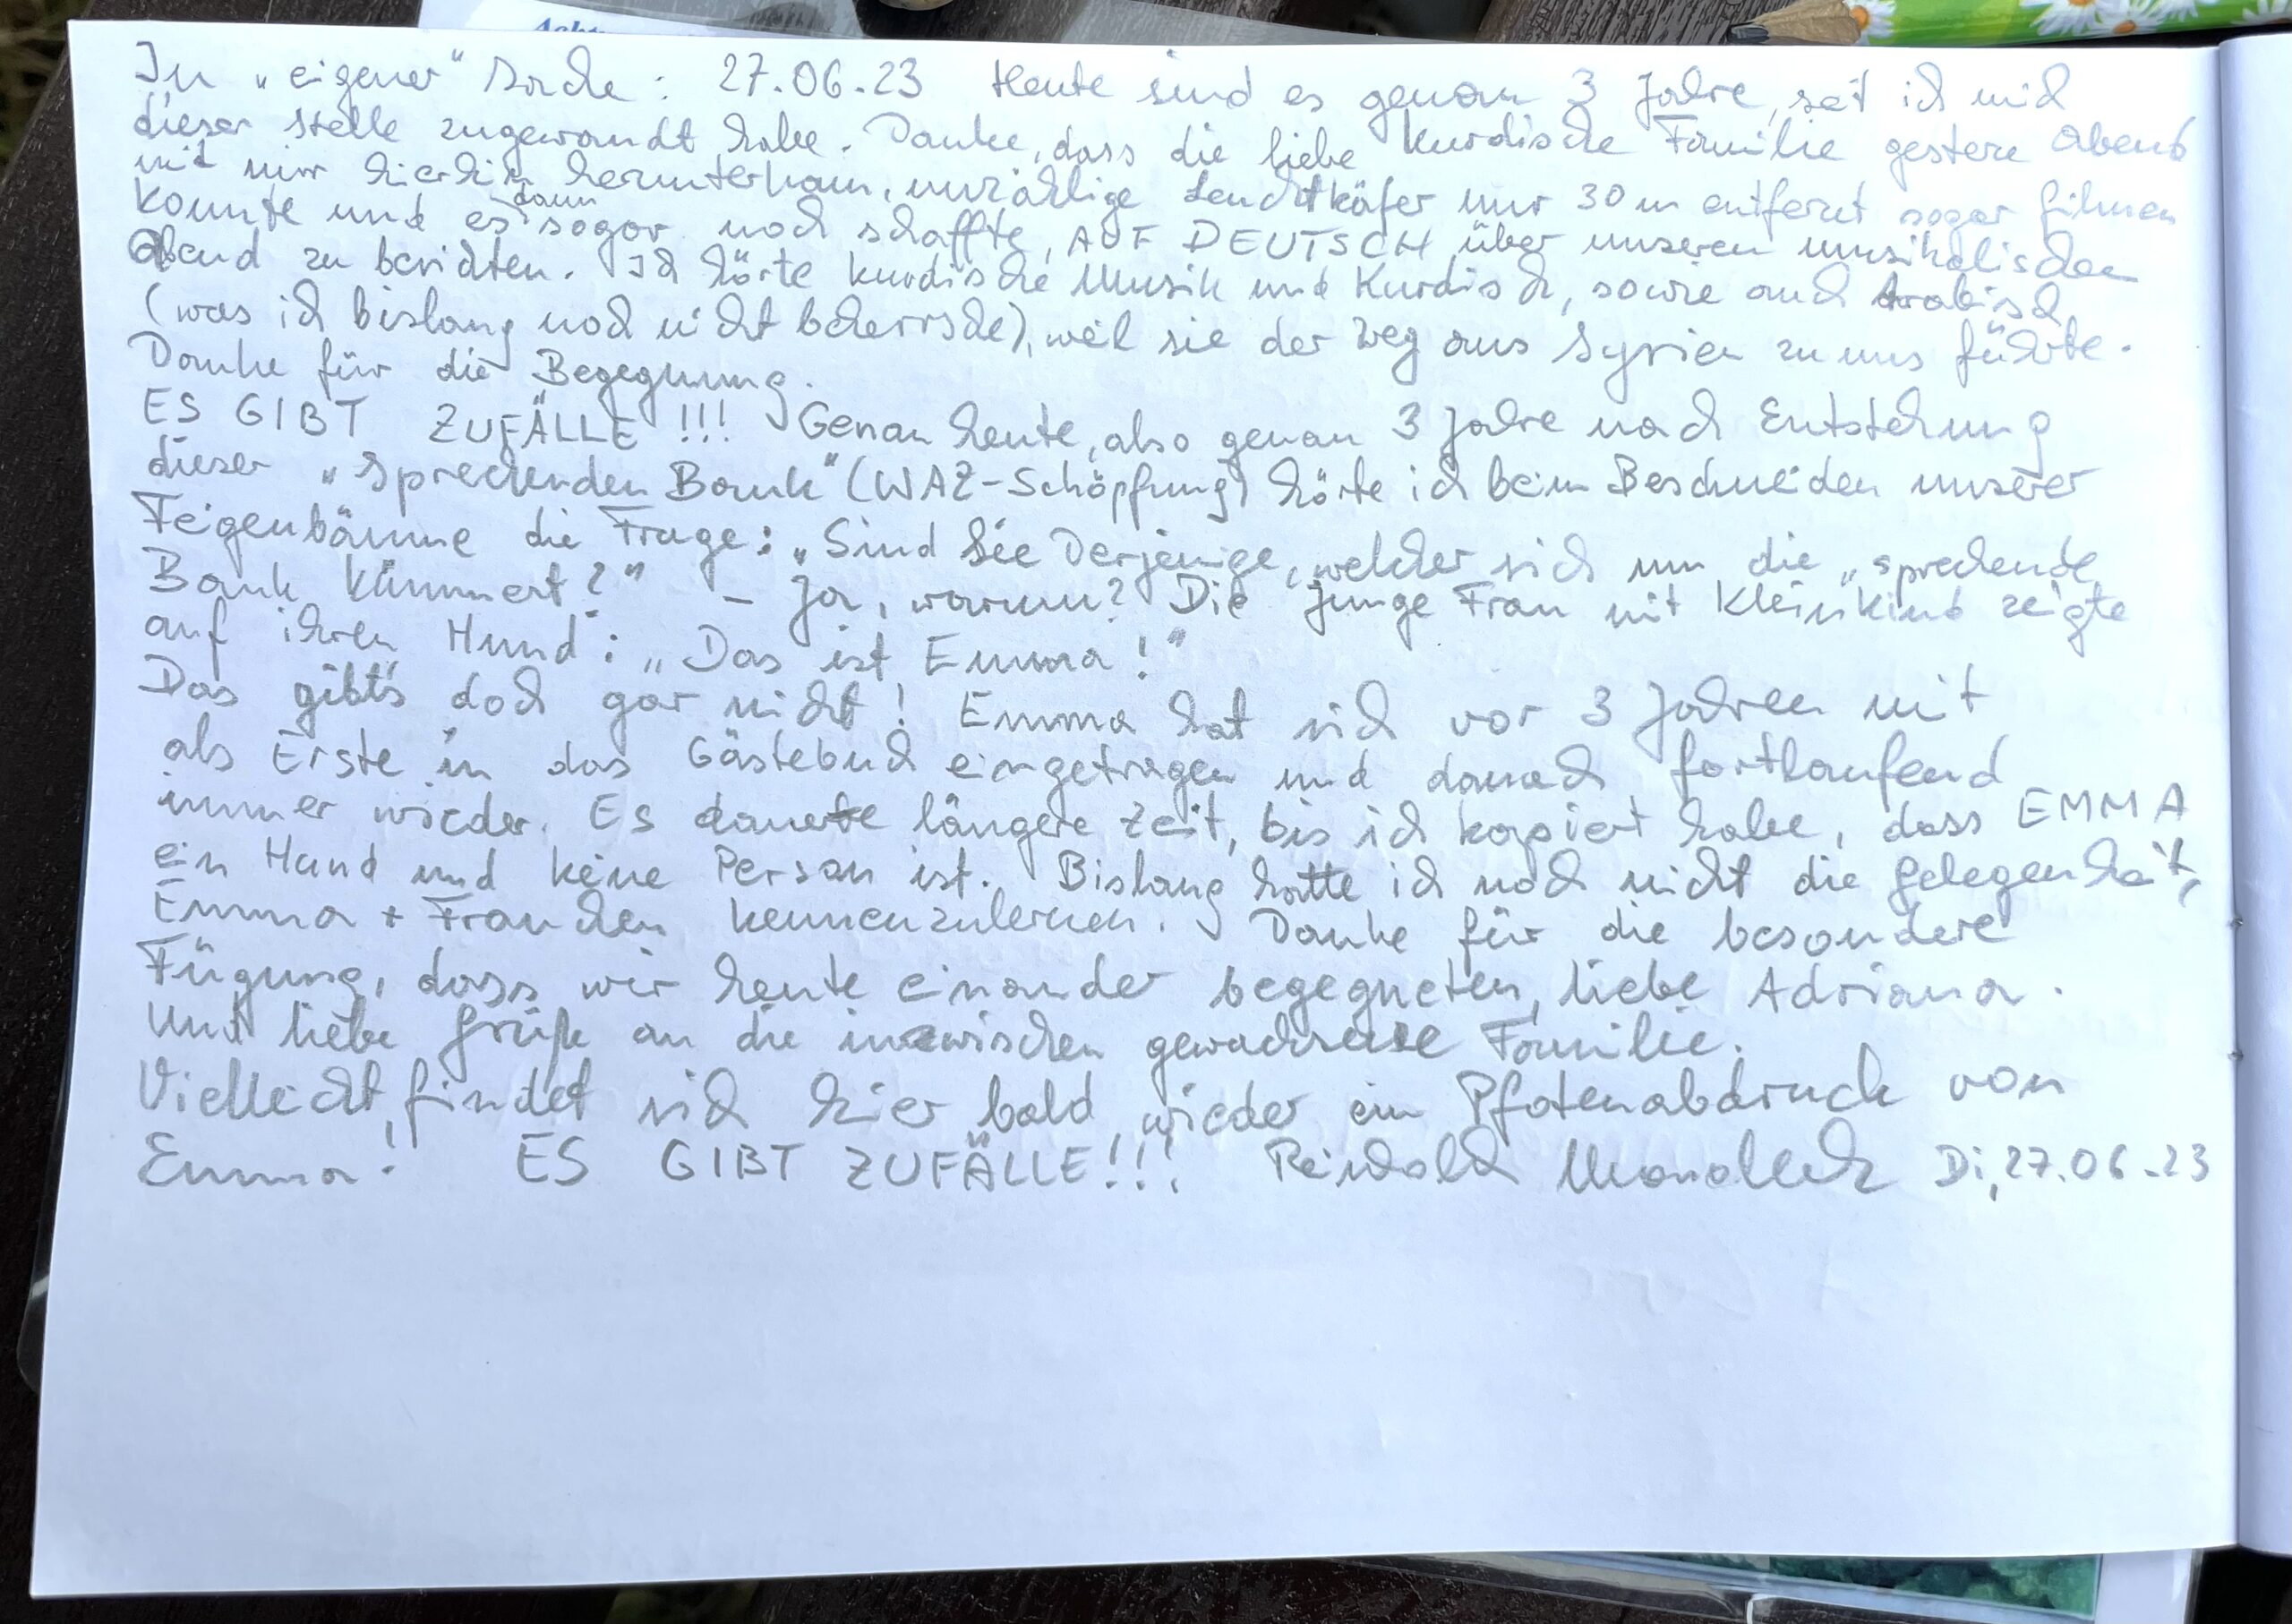 In "eigener" Sache: 27.06.23 Heute sind es genau 3 Jahre, seit ich mich
dieser Stelle zugewandt habe. Danke, dass die liebe kurdische Familie gestern Abend
mit mir hierhin herunterkam, unzählige Leuchtkäfer nur 30 m entfernt sogar filmen
konnte und es dann sogar noch schaffte, AUF DEUTSCH über unseren musikalischen
Abend zu berichten. Ich hörte kurdische Musik und Kurdisch, sowie auch Arabisch
(was ich bislang noch nicht beherrsche), weil sie der Weg aus Syrien zu uns führte.
Danke für die Begegnung.
ES GIBT ZUFÄLLE!!! Genau heute, also genau 3 Jahre nach Entstehung
dieser "Sprechenden Bank" (WAZ-Schöpfung) hörte ich beim Beschneiden unserer
Feigenbäume die Frage: "Sind Sie Derjenige, welcher sich um die "sprechende
Bank kümmert?" - Ja, warum? Die junge Frau mit Kleinkind zeigte
auf ihren Hund: "Das ist Emma!"
Das gibt's doch gar nicht! Emma hat sich vor 3 Jahren mit
als Erste in das Gästebuch eingetragen und danach fortlaufend
immer wieder. Es dauerte längere Zeit, bis ich kapiert habe, dass EMMA
ein Hund und keine Person ist. Bislang hatte ich noch nicht die Gelegenheit,
Emma + Frauchen kennenzulernen. Danke für die besondere
Fügung, dass wir heute einander begegneten, liebe Adriana.
Und liebe Grüße an die inzwischen gewachsene Familie.
Vielleicht findet sich hier bald wieder ein Pfotenabdruck von
Emma! ES GIBT ZUFÄLLE!!! Di, 27.06.23
Acht